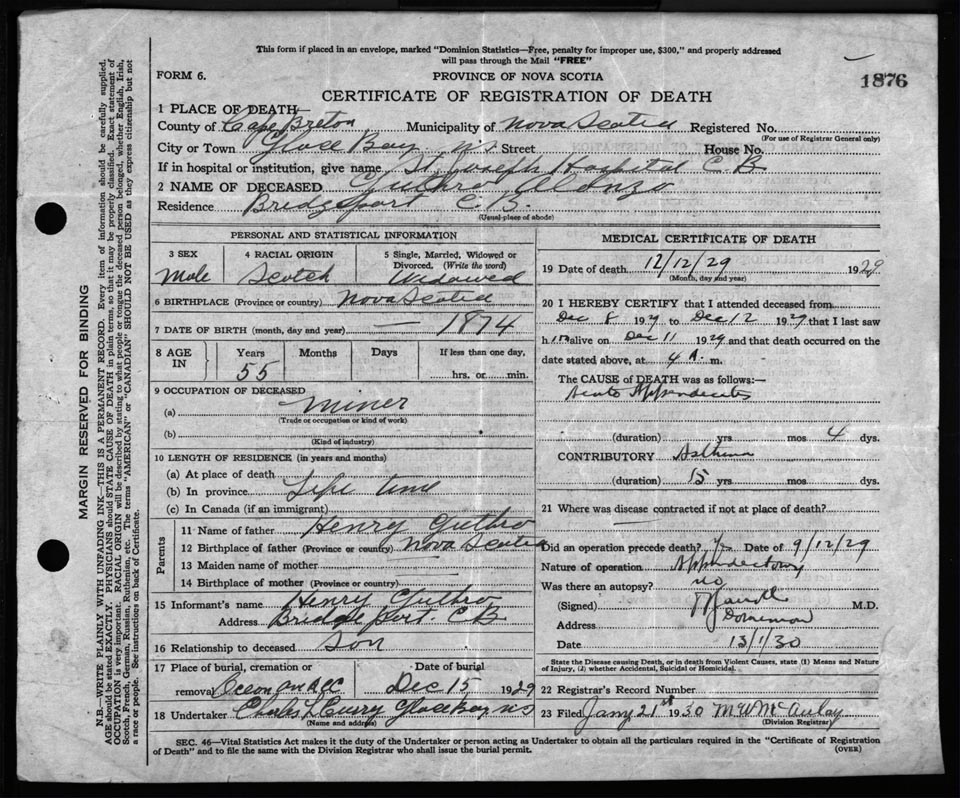 This form if placed in an envelope, marked "Dominion Statistics—Free, penalty for improper use, $300," and properly addressed
will pass through the Mail "FREE"
FORM 6.
PROVINCE OF NOVA SCOTIA
1876
CERTIFICATE OF REGISTRATION OF DEATH
1 PLACE OF DEATH—
County of Cape Breton Municipality of Nova Scotia Registered No.
(For use of Registrar General only)
City or Town Glace Bay N.S. Street House No.
If in hospital or institution, give name St. Joseph Hospital C B
2 NAME OF DECEASED Guthro Alonzo
Residence Bridgeport C.B.
(Usual place of abode)
PERSONAL AND STATISTICAL INFORMATION
3 SEX 4 RACIAL ORIGIN 5 Single, Married, Widowed or
Divorced. (Write the word)
Male Scotch Widowed
6 BIRTHPLACE (Province or country) Nova Scotia
7 DATE OF BIRTH (month, day and year) — 1874
8 AGE IN Years Months Days If less than one day,
55 hrs. or min.
9 OCCUPATION OF DECEASED
(a) Miner
(Trade or occupation or kind of work)
(b)
(Kind of industry)
10 LENGTH OF RESIDENCE (in years and months)
(a) At place of death
(b) In province Life time
(c) In Canada (if an immigrant)
Parents
11 Name of father Henry Guthro
12 Birthplace of father (Province or country) Nova Scotia
13 Maiden name of mother
14 Birthplace of mother (Province or country)
15 Informant's name Henry Guthro
Address Bridgeport. C B
16 Relationship to deceased Son
17 Place of burial, cremation or Date of burial
removal Dec 15 1929
18 Undertaker Charles Curry Glace Bay N S
(Name and address)
MEDICAL CERTIFICATE OF DEATH
19 Date of death 12/12/29 1929
(Month, day and year)
20 I HEREBY CERTIFY that I attended deceased from
Dec 8 1929 to Dec 12 1929 that I last saw
him alive on Dec 11 1929 and that death occurred on the
date stated above, at 4 A. m.
The CAUSE of DEATH was as follows:—
Acute Appendecitis
(duration) yrs mos 4 dys.
CONTRIBUTORY Asthma
(duration) 15 yrs mos dys.
21 Where was disease contracted if not at place of death?
Did an operation precede death? Date of 9/12/29
Nature of operation Appendectomy
Was there an autopsy? no
(Signed) M.D.
Address Dominion
Date 13/1/30
State the Disease causing Death, or in death from Violent Causes, state (1) Means and Nature
of Injury, (2) whether Accidental, Suicidal or Homicidal.
22 Registrar's Record Number
23 Filed Jany 21st 1930 M W McAulay
Division Registrar
SEC. 46—Vital Statistics Act makes it the duty of the Undertaker or person acting as Undertaker to obtain all the particulars required in the "Certificate of Registration
of Death" and to file the same with the Division Registrar who shall issue the burial permit. (OVER)
MARGIN RESERVED FOR BINDING
N.B.—WRITE PLAINLY WITH UNFADING INK—THIS IS A PERMANENT RECORD. Every item of information should be carefully supplied.
AGE should be stated EXACTLY. PHYSICIANS should STATE CAUSE OF DEATH in plain terms, so that it may be properly classified. Exact statement of
OCCUPATION is very important. RACIAL ORIGIN will be described by stating to what people or tongue the deceased person belonged, whether English, Irish,
Scotch, French, German, Russian, Ruthenian, etc. The terms "AMERICAN" or "CANADIAN" SHOULD NOT BE USED as they express citizenship but not
a race or people. See instructions on back of Certificate.